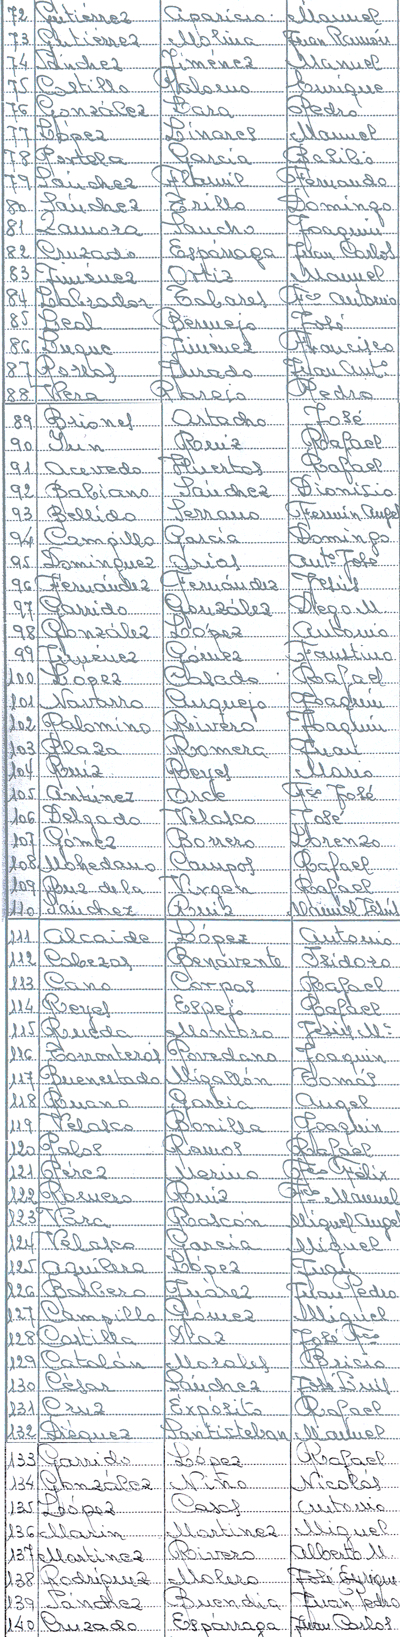 72 Gutiérrez Aparicio Manuel
73 Gutiérrez Molina Juan Ramón
74 Sánchez Jiménez Manuel
75 Castilla Palomo Enrique
76 González Lara Pedro
77 López Linares Manuel
78 Portela García Basilio
79 Sánchez Fernando
80 Sánchez Trillo Domingo
81 Zamora Sancho Joaquín
82 Cruzado Espárraga Juan Carlos
83 Jiménez Ortiz Manuel
84 Labrador Tabares Fco Antonio
85 Leal Bermejo José
86 Luque Jiménez Francisco
87 Porras Jurado Juan Antº
88 Vera Pedro
89 Briones Ortacho José
90 Ruiz Rafael
91 Acevedo Huertas Rafael
92 Babiano Sánchez Dionisio
93 Bellido Serrano Fermín Angel
94 Campillo García Domingo
95 Domínguez Arias Antº José
96 Fernández Fernández Jesús
97 Garrido González Diego M.
98 González López Antonio
99 Jiménez Gómez Faustino
100 López Calado Rafael
101 Navarro Anquejo Joaquín
102 Palomino Rivero Joaquín
103 Plaza Romera Juan
104 Ruiz Reyes Mario
105 Antúnez Orce Fco José
106 Delgado Velasco José
107 Gómez Borrero Lorenzo
108 Mohedano Campos Rafael
109 Ruz de la Virgen Rafael
110 Sánchez Ruiz Manuel Jesús
111 Alcaide López Antonio
112 Cabezas Benavente Isidoro
113 Cano Carpas Rafael
114 Reyes Espejo Rafael
115 Rueda Montoro Jesús Mª
116 Torronteras Povedano Joaquín
117 Buenestado Migallón Tomás
118 Ruano García Angel
119 Velasco Bonilla Joaquín
120 Palos Ramos Rafael
121 Pérez Merino Fco Félix
122 Romero Ruiz Fco Manuel
123 Vara Rascón Miguel Angel
124 Velasco García Miguel
125 Aguilera López Juan
126 Barbero Juárez Juan Pedro
127 Campillo Gómez Miguel
128 Castilla Díaz José Fco
129 Catalán Morales Bricio
130 César Sánchez José Luis
131 Cruz Expósito Rafael
132 Dieguez Santisteban Manuel
133 Garrido López Rafael
134 González Niño Nicolás
135 López Casas Antonio
136 Marín Martínez Miguel
137 Martínez Rivero Alberto M.
138 Rodríguez Molero José Enrique
139 Sánchez Buendía Juan Pedro
140 Cruzado Espárraga Juan Carlos